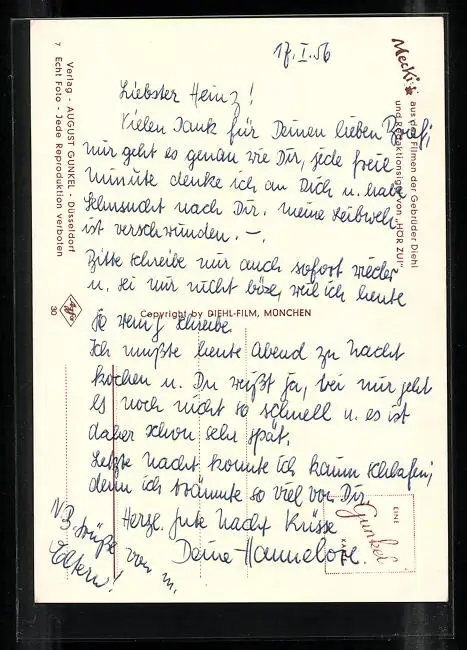 17. I. 56
Liebster Heinz!
Vielen Dank für Deinen lieben Brief;
mir geht es genau wie Dir, jede freie
Minute denke ich an Dich u. habe
Sehnsucht nach Dir. Meine Leibweh
ist verschwunden. –.
Bitte schreibe mir auch sofort wieder
u. sei mir nicht böse, weil ich heute
so wenig schreibe.
Ich mußte heute Abend zu Nacht
kochen u. Du weißt ja, bei mir geht
es noch nicht so schnell u. es ist
daher schon sehr spät.
Letzte Nacht konnte ich kaum schlafen;
denn ich träumte so viel von Dir
Herzl. gute Nacht Küsse
Deine Hannelore.
NB. Grüße
von m.
Eltern!
Mecki
aus den Filmen der Gebrüder Diehl
und Redaktionsigel von "HÖR ZU!"
Copyright by DIEHL-FILM, MÜNCHEN
Verlag - AUGUST GUNKEL - Düsseldorf
7 Echt Foto - Jede Reproduktion verboten
Agfa
30
EINE
Gunkel